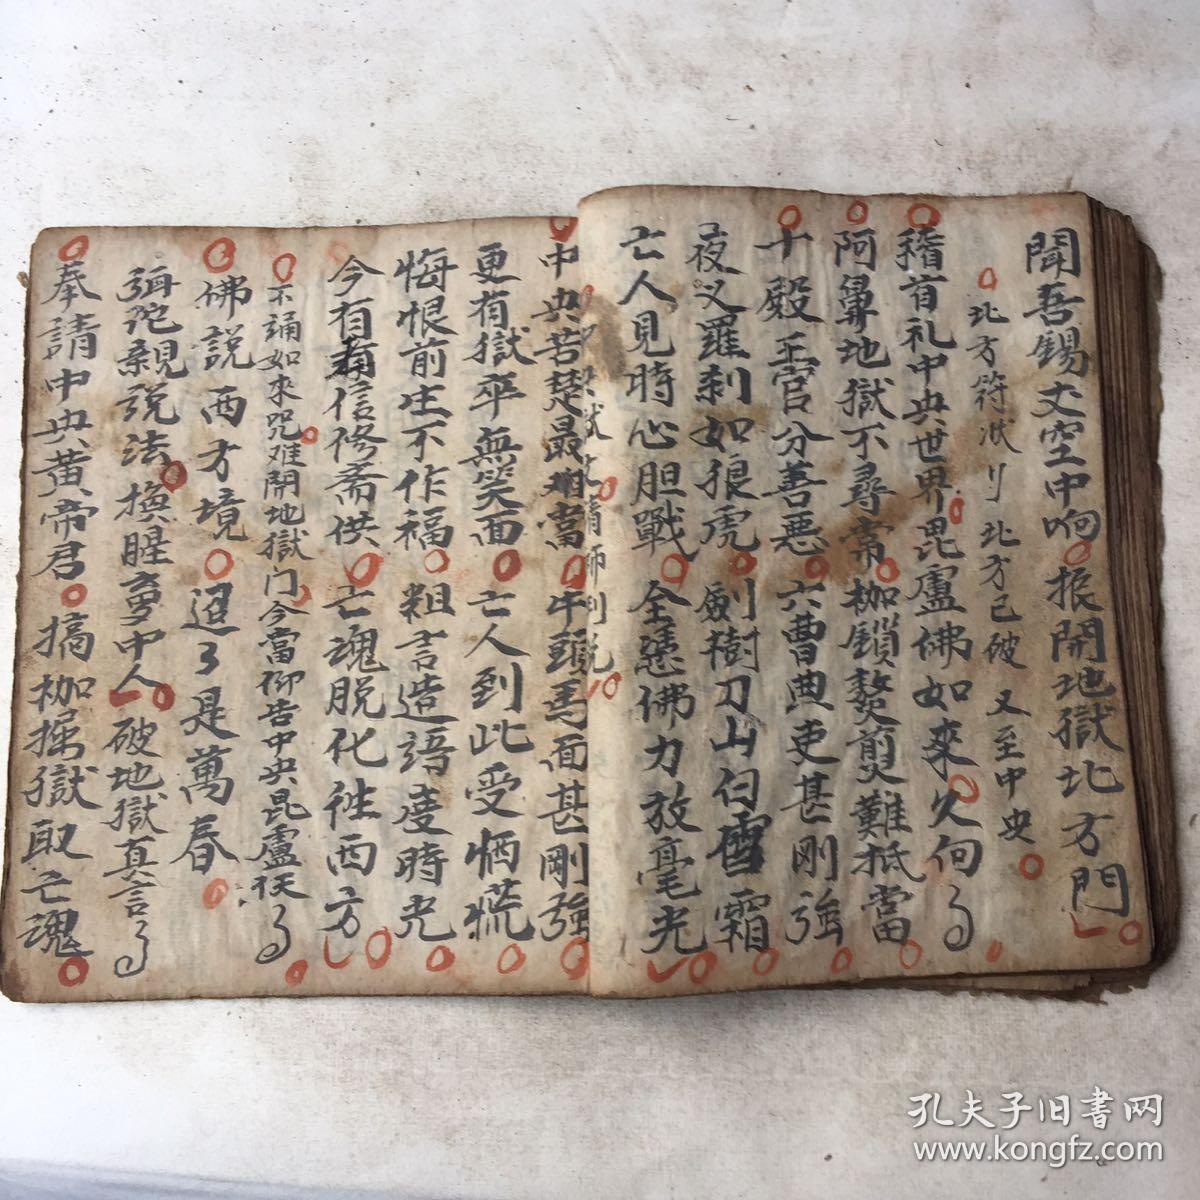 聞吾錫丈空中响振開地獄北方門
北方符水刂北方已破又至中央
稽首礼中央世界毘盧佛如來久向了
阿鼻地獄不尋常枷鎖熬煎難抵當
十殿王官分善惡六曹典吏甚剛強
夜义羅刹如狼虎劍樹刀山白霜
亡人見時心胆戰全慿佛力放毫光
中央苦楚最堪當牛頭馬面甚剛強
更有獄卒無笑面亡人到此受恓慌
悔恨前生不作福粗言造語度時光
今有信修斋供亡魂脱化徃西方
不誦如來咒难開地獄门今當仰告中央毘盧
佛説西方境迢了是萬春
弥陀親説法換醒夢中人破地獄真言了
奉請中央黄帝君搞枷掘獄取亡魂
孔夫子旧書网
www.kongfz.com